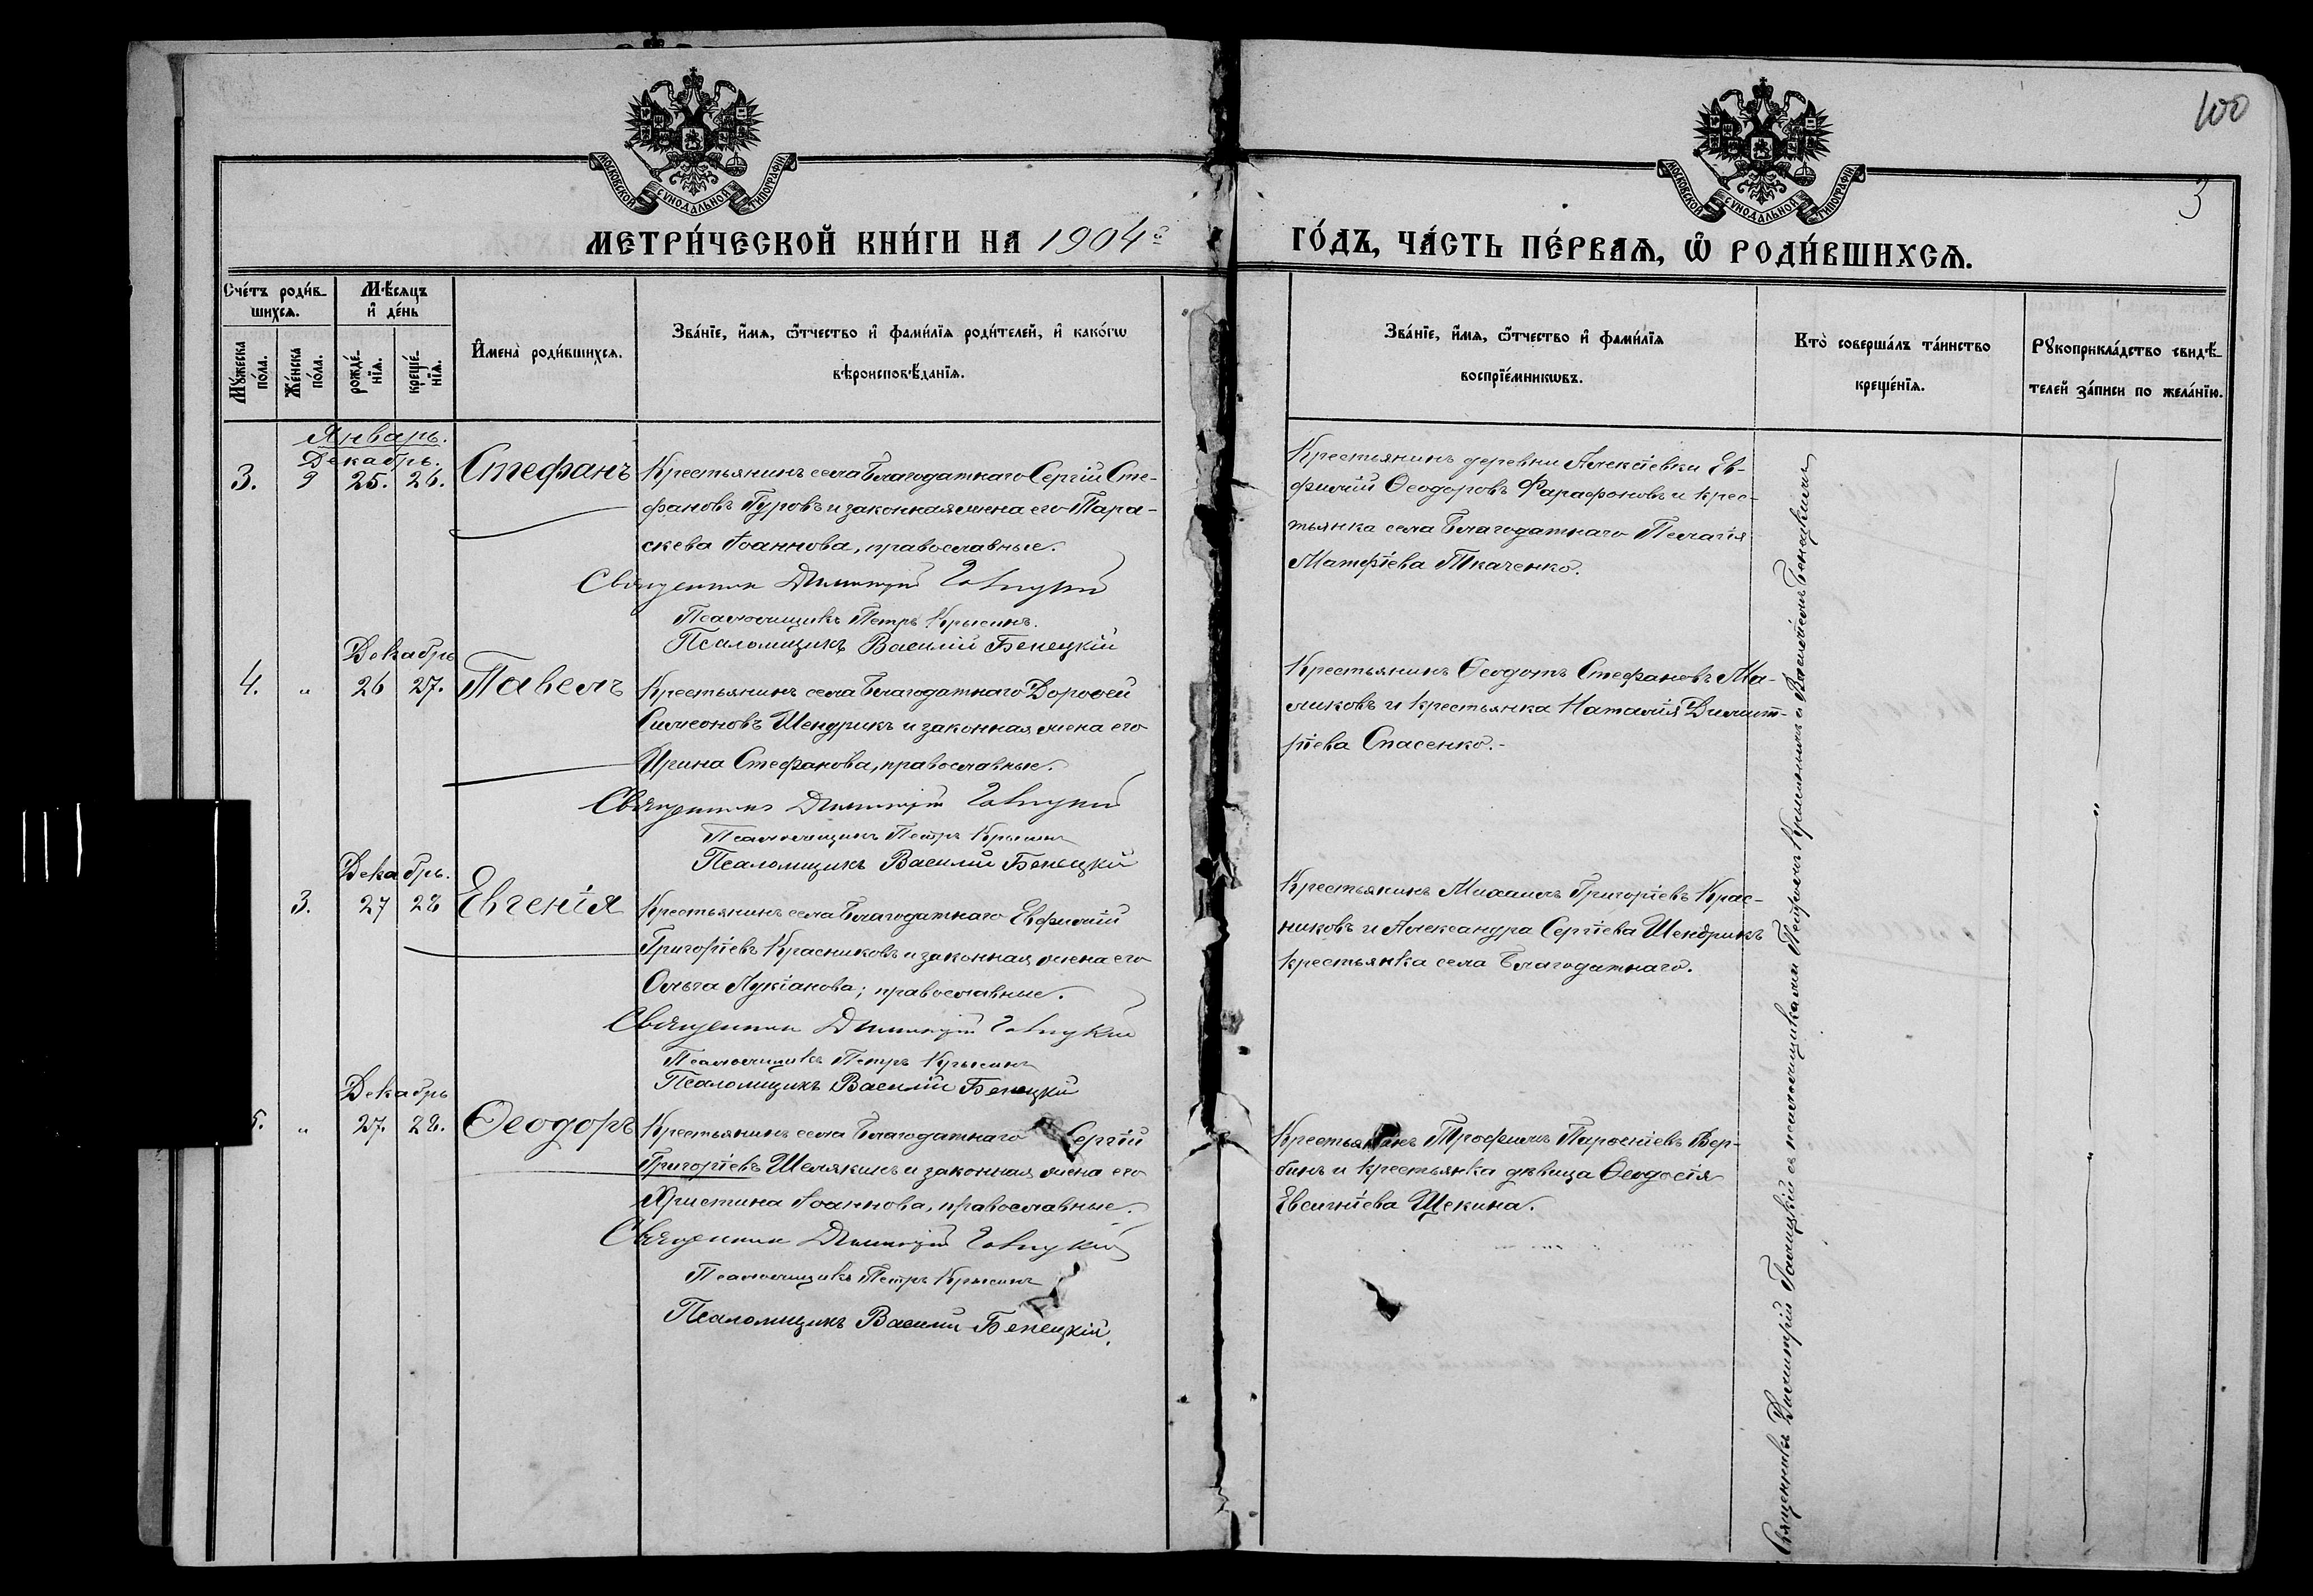 100
3
МОСКОВСКОЙ СѴНОДАЛЬНОЙ ТИПОГРАФІИ
МОСКОВСКОЙ СѴНОДАЛЬНОЙ ТИПОГРАФІИ
МЕТРИ́ЧЕСКОЙ КНИ́ГИ НА 1904й
ГО́ДЪ, ЧА́СТЬ ПЕ́РВАѦ, Ѡ҆ РОДИ́ВШИХСѦ.
Сче́тъ роди́в-
шихсѧ.
Мꙋ́жеска по́ла.
Же́нска по́ла.
Мѣ́сѧцъ
и҆ де́нь
рожде́-
нїѧ.
креще́-
нїѧ.
И҆мена̀ роди́вшихсѧ.
Зва́нїе, и҆́мѧ, ѻ҆́тчество и҆ фами́лїѧ роди́телей, и҆ како́гѡ
вѣроисповѣ́данїѧ.
Зва́нїе, и҆́мѧ, ѻ҆́тчество и҆ фами́лїѧ
воспрїе́мникѡвъ.
Кто̀ соверша́лъ та́инство
креще́нїѧ.
Рꙋкоприкла́дство свидѣ́-
телей за́писи по жела́нїю.
Январь.
Декабрь.
3. 25. 26. Стефанъ
Крестьянинъ села Благодатнаго Сергій Сте-
фановъ Гуровъ и законная жена его Пара-
скева Іоаннова, православные.
Священникъ Димитрій Галицкій
Псаломщикъ Петръ Крысинъ.
Псаломщикъ Василій Бенецкій
Крестьянинъ деревни Алексѣевки Ев-
фимій Ѳеодоровъ Фарафоновъ и крес-
тьянка села Благодатнаго Пелагія
Матфіева Ткаченко.
Декабрь
4. „ 26 27. Павелъ
Крестьянинъ села Благодатнаго Дороѳей
Симеоновъ Шендрикъ и законная жена его
Ирина Стефанова, православные.
Священникъ Димитрій Галицкій
Псаломщикъ Петръ Крысинъ
Псаломщикъ Василій Бенецкій
Крестьянинъ Ѳеодотъ Стефановъ Ма-
ликовъ и крестьянка Наталія Димит-
ріева Спасенко.-
Декабрь.
3. 27 28 Евгенія
Крестьянинъ села Благодатнаго Евфимій
Григоріевъ Красниковъ и законная жена его
Ольга Лукіанова; православные.
Священникъ Димитрій Галицкій
Псаломщикъ Петръ Крысинъ
Псаломщикъ Василій Бенецкій
Крестьянинъ Михаилъ Григоріевъ Крас-
никовъ и Александра Сергіева Шендрикъ
крестьянка села Благодатнаго.
Декабрь
5. „ 27. 28. Ѳеодоръ
Крестьянинъ села Благодатнаго Сергій
Григоріевъ Шелякинъ и законная жена его
Христина Іоаннова, православные.
Священникъ Димитрій Галицкій
Псаломщикъ Петръ Крысинъ
Псаломщикъ Василій Бенецкій.
Крестьянинъ Трофимъ Парѳеніевъ Вер-
бинъ и крестьянка дѣвица Ѳеодосія
Евсигніева Щекина.
Священникъ Димитрій Галицкій съ псаломщиками Петромъ Крысинымъ и Василіемъ Бенецкимъ